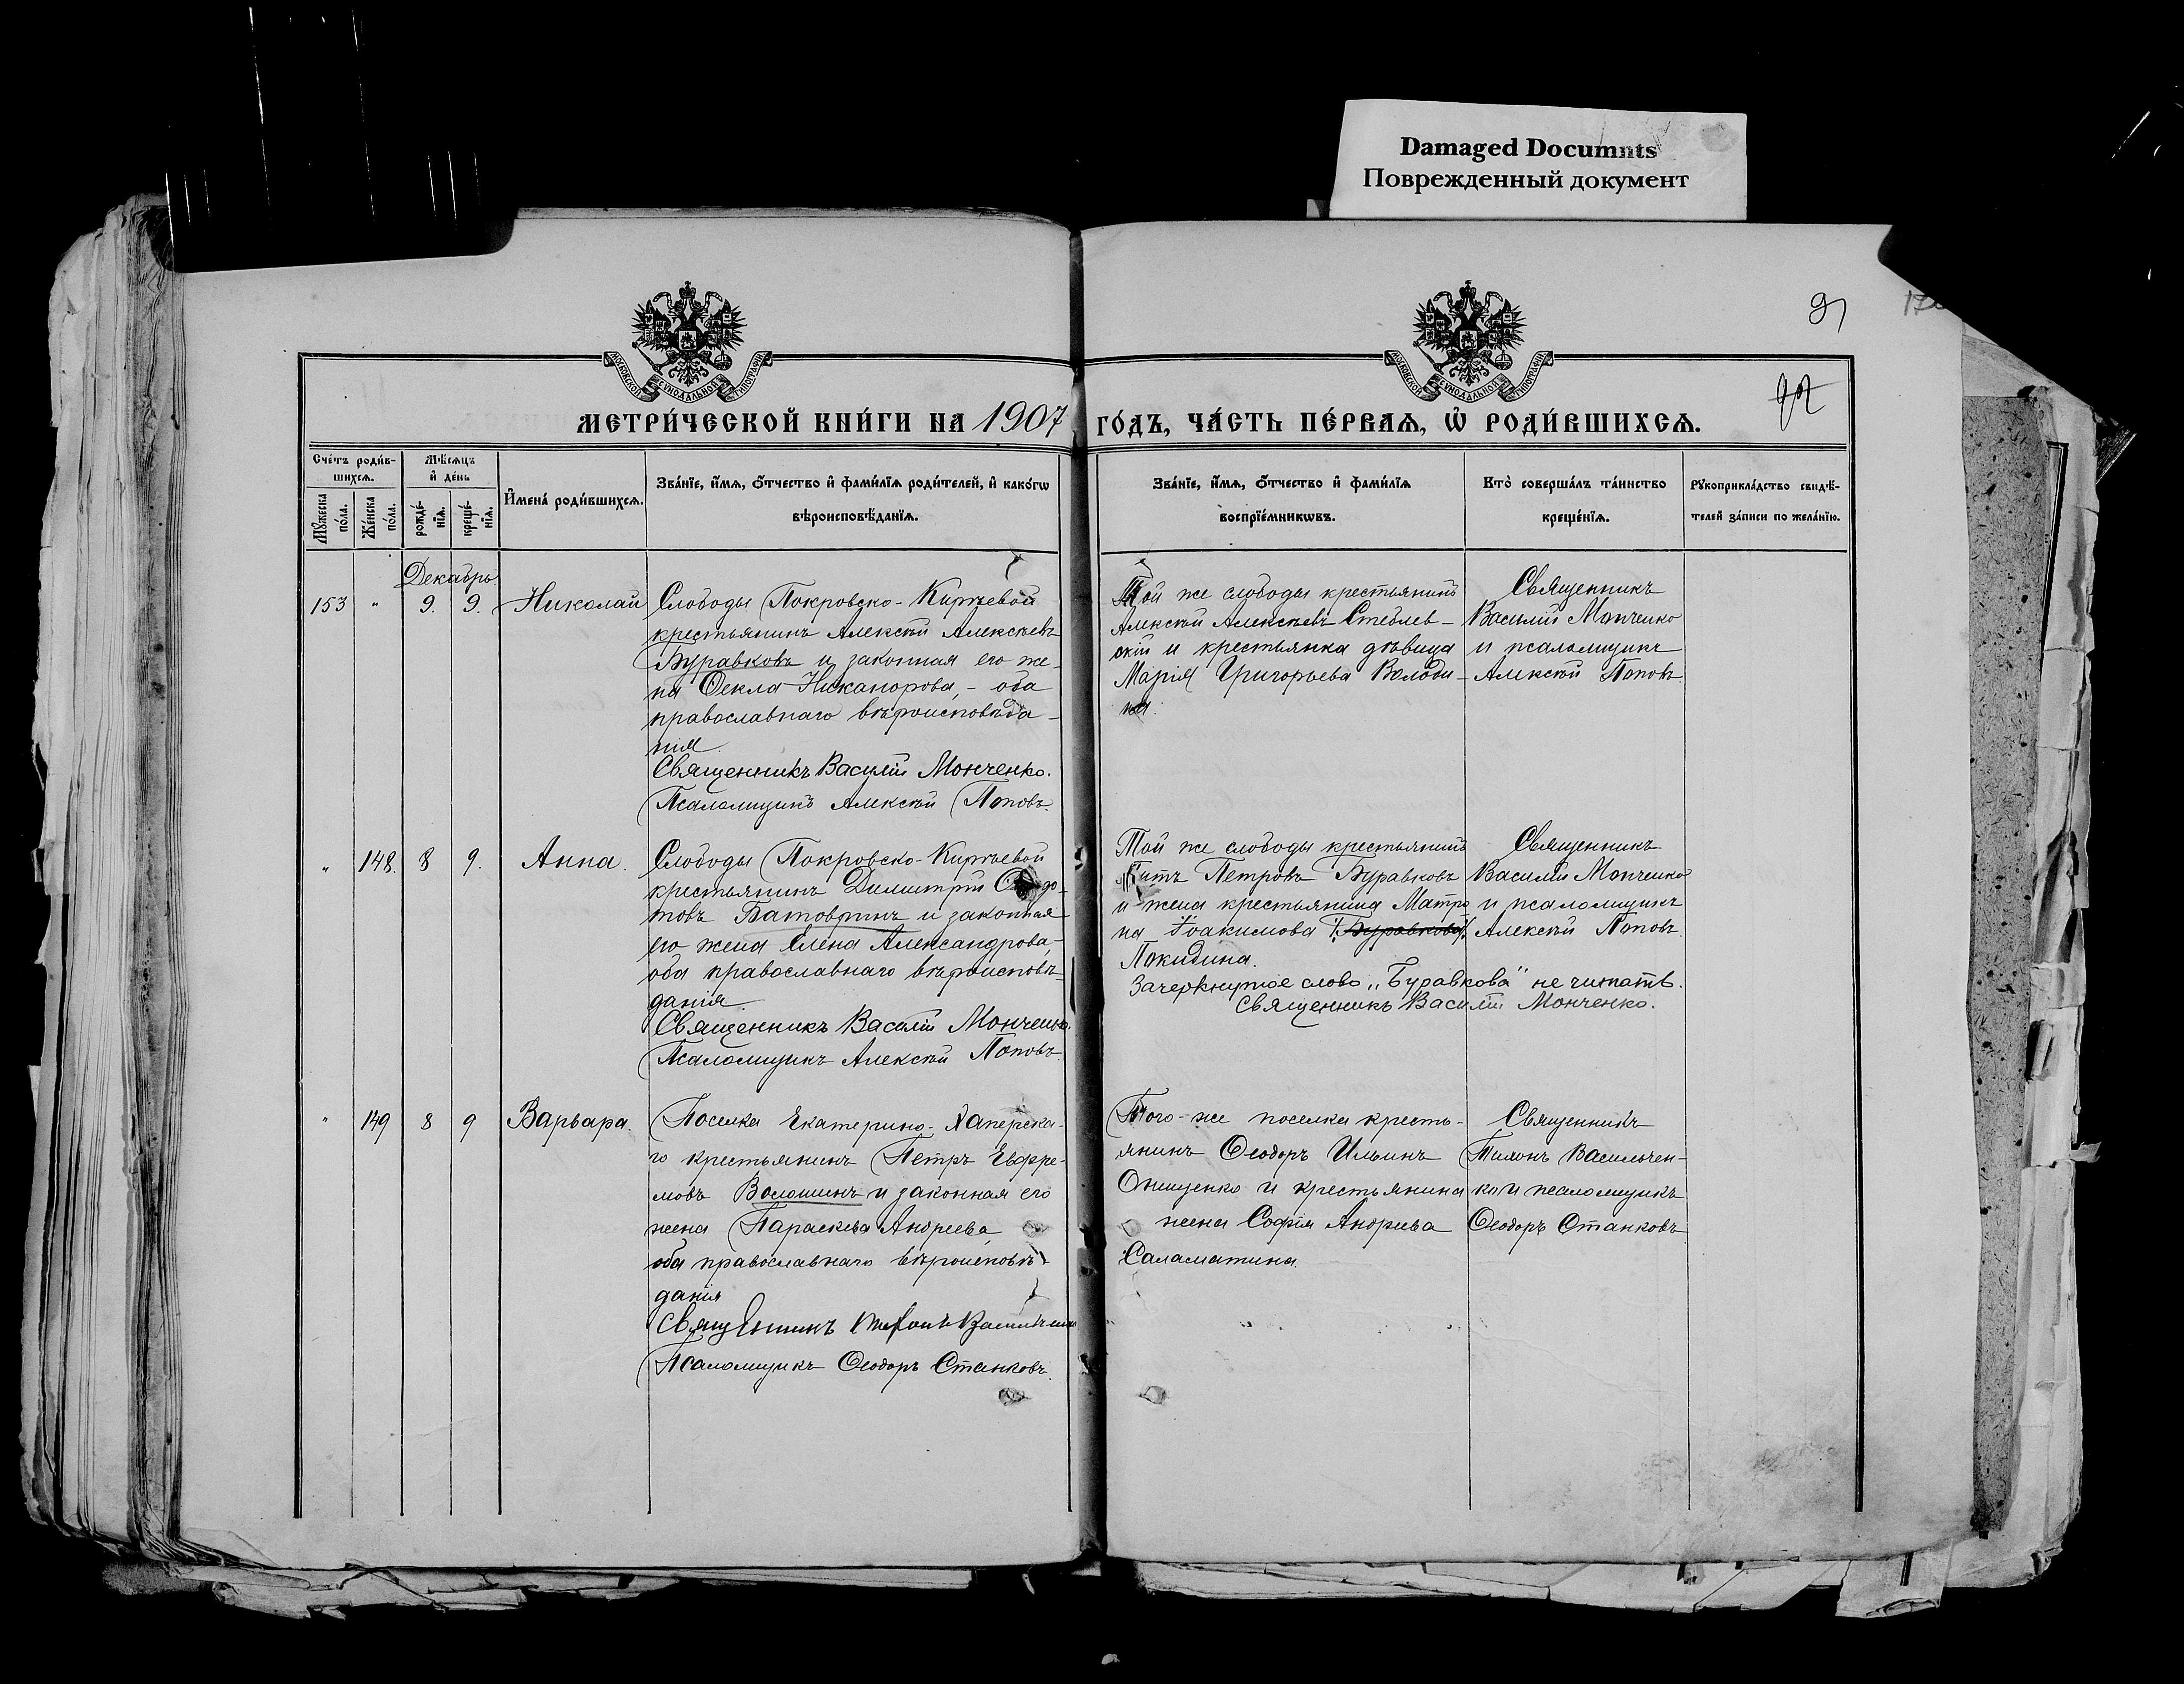 Damaged Documnts
Поврежденный документ
91
МОСКОВСКОЙ СѴНОДАЛЬНОЙ ТИПОГРАФІИ
МОСКОВСКОЙ СѴНОДАЛЬНОЙ ТИПОГРАФІИ
МЕТРИ́ЧЕСКОЙ КНИ́ГИ НА 1907 ГО́ДЪ, ЧА́СТЬ ПЕ́РВАѦ, Ѡ҆ РОДИ́ВШИХСѦ.
Сче́тъ роди́в-
шихсѧ.
Мꙋ́жеска по́ла.
Же́нска по́ла.
Мѣ́сѧцъ
и҆ де́нь
рожде́-
нїѧ.
креще́-
нїѧ.
И҆мена̀ роди́вшихсѧ.
Зва́нїе, и҆́мѧ, ѻ҆́тчество и҆ фами́лїѧ роди́телей, и҆ како́гѡ
вѣроисповѣ́данїѧ.
Зва́нїе, и҆́мѧ, ѻ҆́тчество и҆ фами́лїѧ
воспрїе́мникѡвъ.
Кто̀ соверша́лъ та́инство
креще́нїѧ.
Рꙋкоприкла́дство свидѣ́-
телей за́писи по жела́нїю.
Декабрь
153 " 9. 9. Николай
Слободы Покровско-Киреевой
крестьянинъ Алексѣй Алексѣевъ
Буравковъ и законная его же-
на Ѳекла Никанорова, - оба
православнаго вѣроисповѣда-
нія.
Священникъ Василій Мончeнко.
Псаломщикъ Алексѣй Поповъ.
Той же слободы крестьянинъ
Алексѣй Алексѣевъ Стеблев-
скій и крестьянка дѣвица
Марія Григорьева Володи-
на.
Священникъ
Василій Монченко
и псаломщикъ
Алексѣй Поповъ.
" 148. 8 9. Анна.
Слободы Покровско-Киреевой
крестьянинъ Димитрій
товъ Батовринъ и законная
его жена Елена Александрова,
оба православнаго вѣроисповѣ-
данія
Священникъ Василій Монченко.
Псаломщикъ Алексѣй Поповъ.
Той же слободы крестьянинъ
Титъ Петровъ Буравковъ
и жена крестьянина Матро
на Іоакимова Буравкова
Покидина.
Зачеркнутое слово „Буравкова" не читать.
Священникъ Василій Монченко.
Священникъ
Василій Монченко
и псаломщикъ
Алексѣй Поповъ.
" 149 8 9 Варвара.
Поселка Екатерино-Хаперска-
го крестьянинъ Петръ Ефре-
мовъ Волошинъ и законная его
жена Параскева Андреева
оба православнаго вѣроисповѣ-
данія
Священникъ Тихонъ Васильченко
Псаломщикъ Ѳеодоръ Станковъ.
Того-же поселка кресть-
янинъ Ѳеодоръ Ильинъ
Онищенко и крестьянина
жена Софія Андреева
Саламатина.
Священникъ
Тихонъ Васильчен-
ко и псаломщикъ
Ѳеодоръ Станковъ